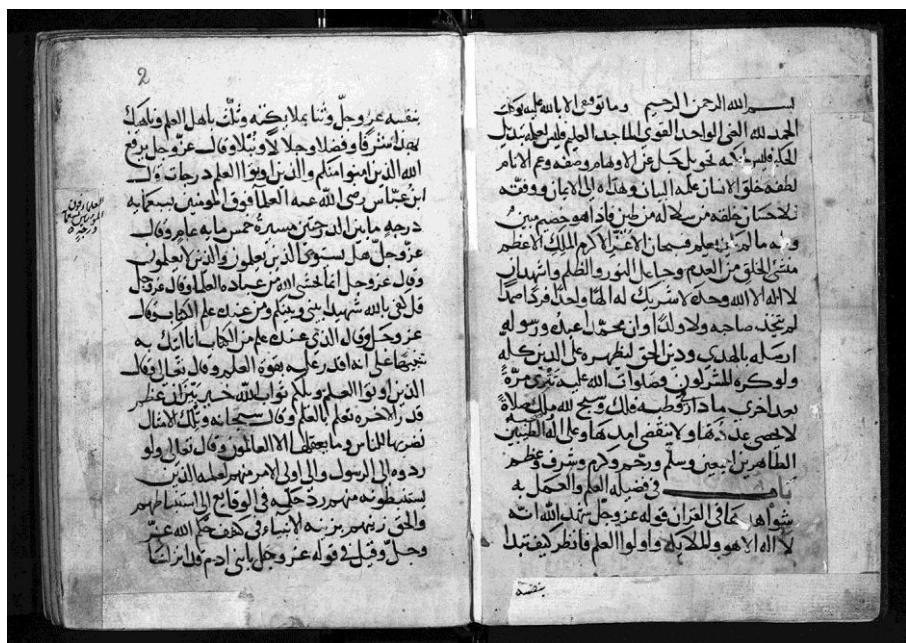 بسم الله الرحمن الرحيم وما توفيقي الا بالله عليه توكلت
الحمد لله الغني الواحد القوي الماجد العليم فليس لعلمه تبديل
الحكيم فليس لحكمه تحويل جل عن الاوهام وصفه وعم الانام
لطفه خلق الانسان علمه البيان وهداه الى الايمان ووفقه
للاحسان خلقه من سلالة من طين فاذا هو خصيم مبين
وعلمه ما لم يكن يعلم فسبحان الاعز الاكرم الملك الاعظم
منشئ الخلق من العدم وجاعل النور والظلم واشهد ان
لا اله الا الله وحده لا شريك له الها واحدا فردا صمدا
لم يتخذ صاحبه ولا ولدا وان محمدا عبده ورسوله
ارسله بالهدي ودين الحق ليظهره على الدين كله
ولو كره المشركون وصلوات الله عليه تترى مرة
بعد اخري ما دار فلك وسبح لله ملك صلاة
لا يحصى عددها ولا ينقضي امدها وعلى اله الطيبين
الطاهرين اجمعين وسلم ورحم وكرم وشرف وعظم
باب في فضيله العلم والعمل به
شواهدها في القران قوله عز وجل شهد الله انه
لا اله الا هو والملايكه واولوا العلم فانظر كيف بدا
بنفسه
2
بنفسه عز وجل وثنا بملايكته وثلث باهل العلم وناهيك
بهذا شرفا وفضلا وجلالا ونبلا وقال عز وجل يرفع
الله الذين امنوا منكم والذين اوتوا العلم درجات قال
ابن عباس رضي الله عنه العلما فوق المومنين بسبعمايه
درجه ما بين الدرجتين مسيرة خمس مايه عام وقال
عز وجل هل يستوي الذين يعلمون والذين لا يعلمون
وقال عز وجل انما يخشى الله من عباده العلما وقال عز وجل
قل كفى بالله شهيدا بيني وبينكم ومن عنده علم الكتاب وقال
عز وجل وقال الذي عنده علم من الكتاب انا اتيك به
تنبيها على انه اقتدر عليه بقوة العلم وقال تعالى وقال
الذين اوتوا العلم ويلكم ثواب الله خير بين ان عظم
قدر الاخره تعلم بالعلم وقال سبحانه وتلك الامثال
نضربها للناس وما يعقلها الا العالمون وقال تعالى ولو
ردوه الى الرسول والى اولي الامر منهم لعلمه الذين
يستنبطونه منهم رد حكمه في الوقايع الى استنباطهم
والحق رتبهم برتبه الانبياء في كشف حكم الله عز
وجل وقيل في قوله عز وجل يا بني ادم قد انزلنا